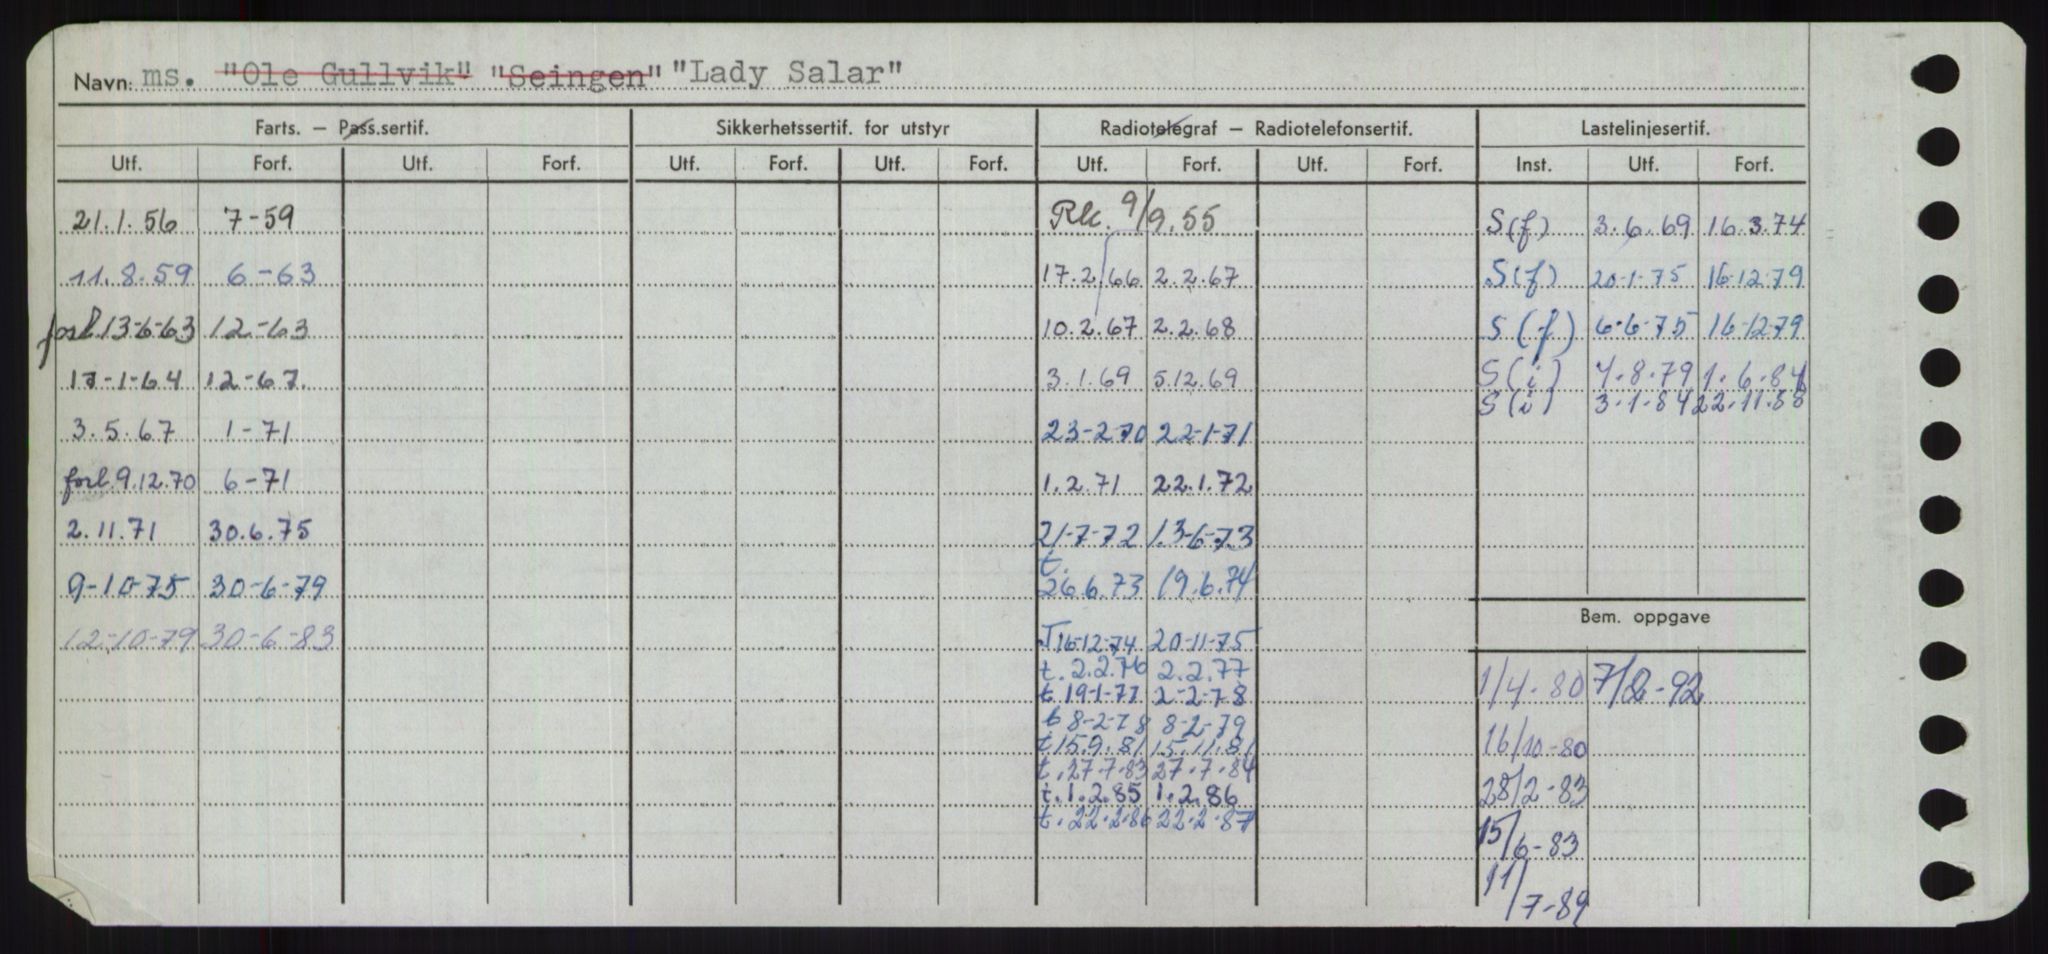 Navn: ms. "Ole Gullvik" "Seingen" "Lady Salar"
Farts. – Pass.sertif. Sikkerhetssertif. for utstyr Radiotelegraf – Radiotelefonsertif. Lastelinjesertif.
Utf. Forf. Utf. Forf. Utf. Forf. Utf. Forf. Utf. Forf. Utf. Forf. Inst. Utf. Forf.
21.1.56 7-59 Rk. 9/9.55 S(f) 3.6.69 16.3.74
11.8.59 6-63 17.2.66 2.2.67 S(f) 20-1-75 16-12-79
forl. 13-6-63 12-63 10.2.67 2.2.68 S(f) 6-6-75 16-12-79
17-1-64 12-67. 3.1.69 5.12.69 S(i) 7.8.79 1.6.84
S(i) 3.1.84 22.11.88
3.5.67 1-71 23-2-70 22-1-71
forl. 9.12.70 6-71 1.2.71 22.1.72
2.11.71 30.6.75 21-7-72 13-6-73
9-10-75 30-6-79 t. 26.6.73 19.6.74
Bem. oppgave
12-10-79 30-6-83 T 16-12-74 20-11-75
t. 2.2.76 2.2.77
1/4-80 7/2-92
t. 19-1-77 2-2-78
t 8-2-78 8-2-79
t 15.9.81 15.11.81 16/10-80
t. 27.7.83 27.7.84
t. 1.2.85 1.2.86 28/2-83
t. 22.2.86 22.2.87
15/6-83
11/7-89